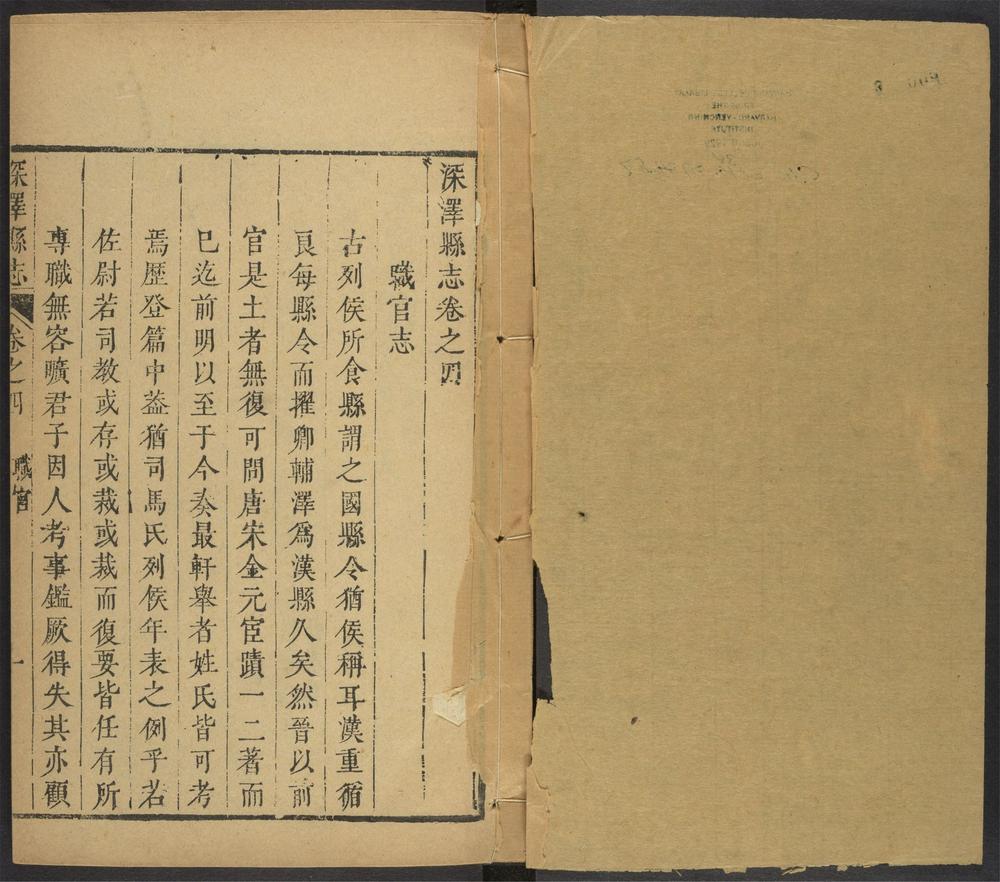 深澤縣志卷之四
職官志
古列侯所食縣謂之國縣令猶侯稱耳漢重循
良每縣令而擢卿輔澤爲漢縣久矣然晉以前
官是土者無復可問唐宋金元宦蹟一二著而
已迄前明以至于今奏最軒舉者姓氏皆可考
焉歷登篇中葢猶司馬氏列侯年表之例乎若
佐尉若司教或存或裁或裁而復要皆任有所
專職無容曠君子因人考事鑑厥得失其亦顧
深澤縣志 卷之四 職官 一